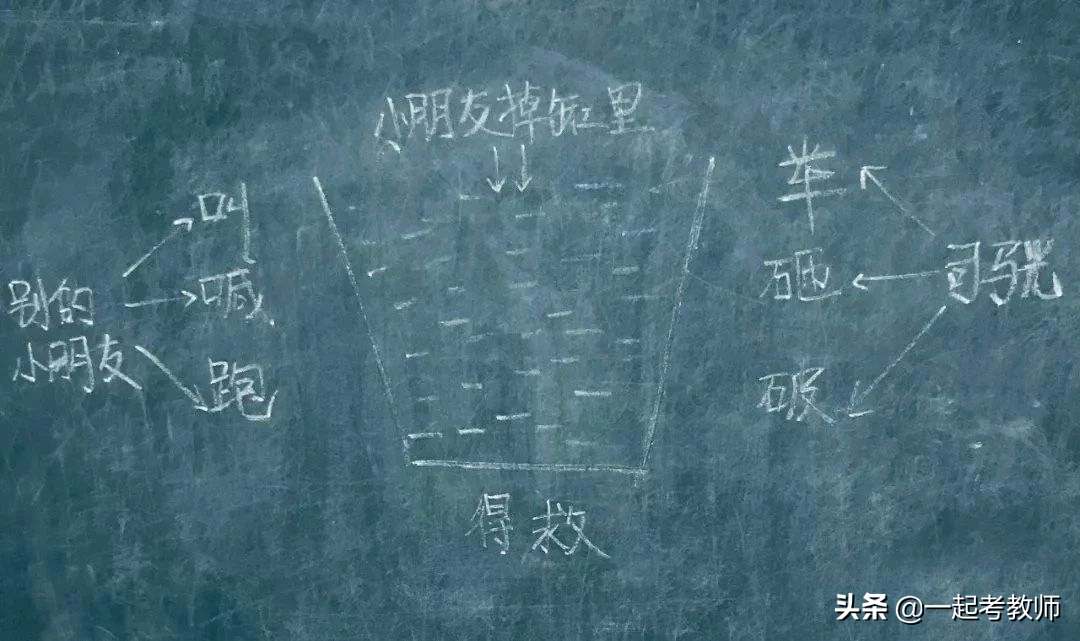 小朋友掉缸里
叫
喊
跑
别的
小朋友
举
砸
破
司马光
得救
头条 @一起考教师